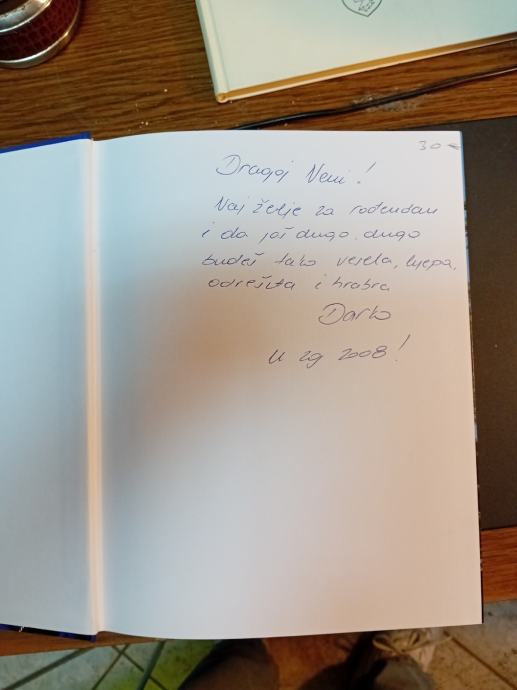 30 €
Dragoj Neni!
Naj želje za rođendan
i da još dugo, dugo
budeš tako vesela, lijepa,
odrešita i hrabra
Darko
U zg 2008!